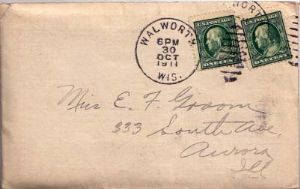 WALWORTH
6 PM
30
OCT
1911
WIS.
WORTH
U.S. POSTAGE
ONE CENT
Miss E. F. Groom
333 South Ave.
Aurora
Ill